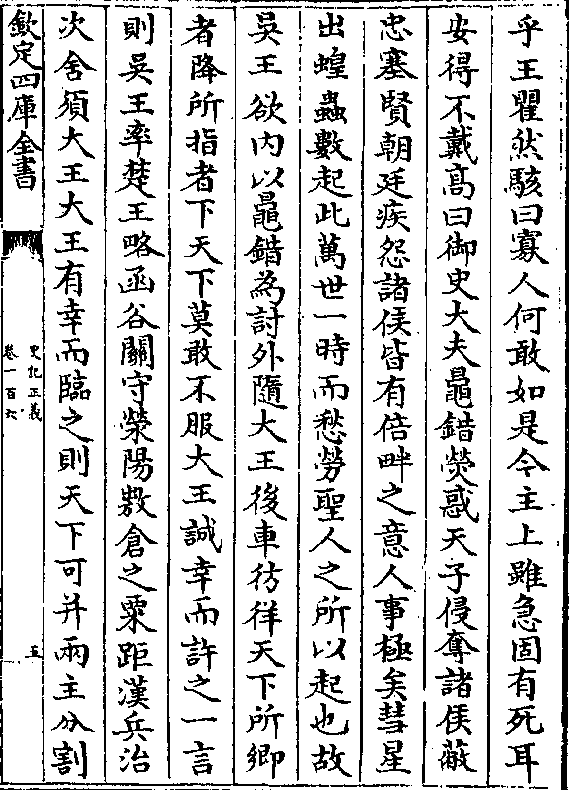 乎王瞿然駭曰寡人何敢如是今主上雖急固有死耳
安得不戴高曰御史大夫鼂錯熒惑天子侵奪諸侯蔽
忠塞賢朝廷疾怨諸侯皆有倍畔之意人事極矣彗星
出蝗蟲數起此萬世一時而愁勞聖人之所以起也故
吳王欲内以鼂錯為討外隨大王後車彷徉天下所鄉
者降所指者下天下莫敢不服大王誠幸而許之一言
則吳王率楚王略函谷關守滎陽敖倉之粟距漢兵治
次舍須大王大王有幸而臨之則天下可并兩主分割
欽定四庫全書
史記正義
卷一百六
五